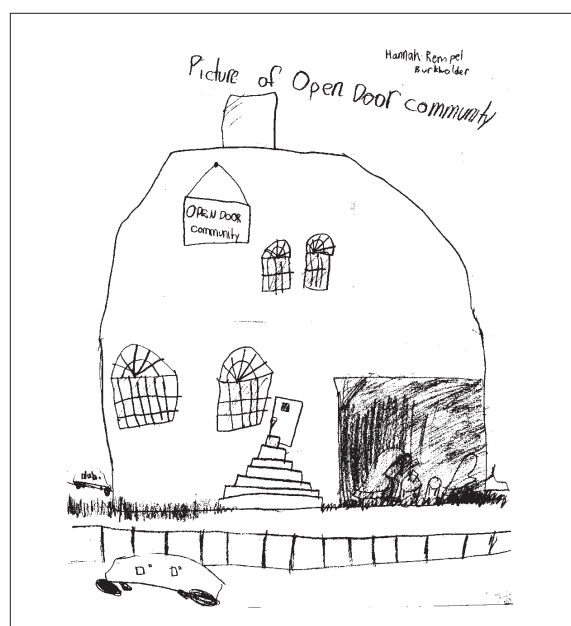 Hannah Rempel
Burkholder
Picture of Open Door community
OPEN DOOR
community